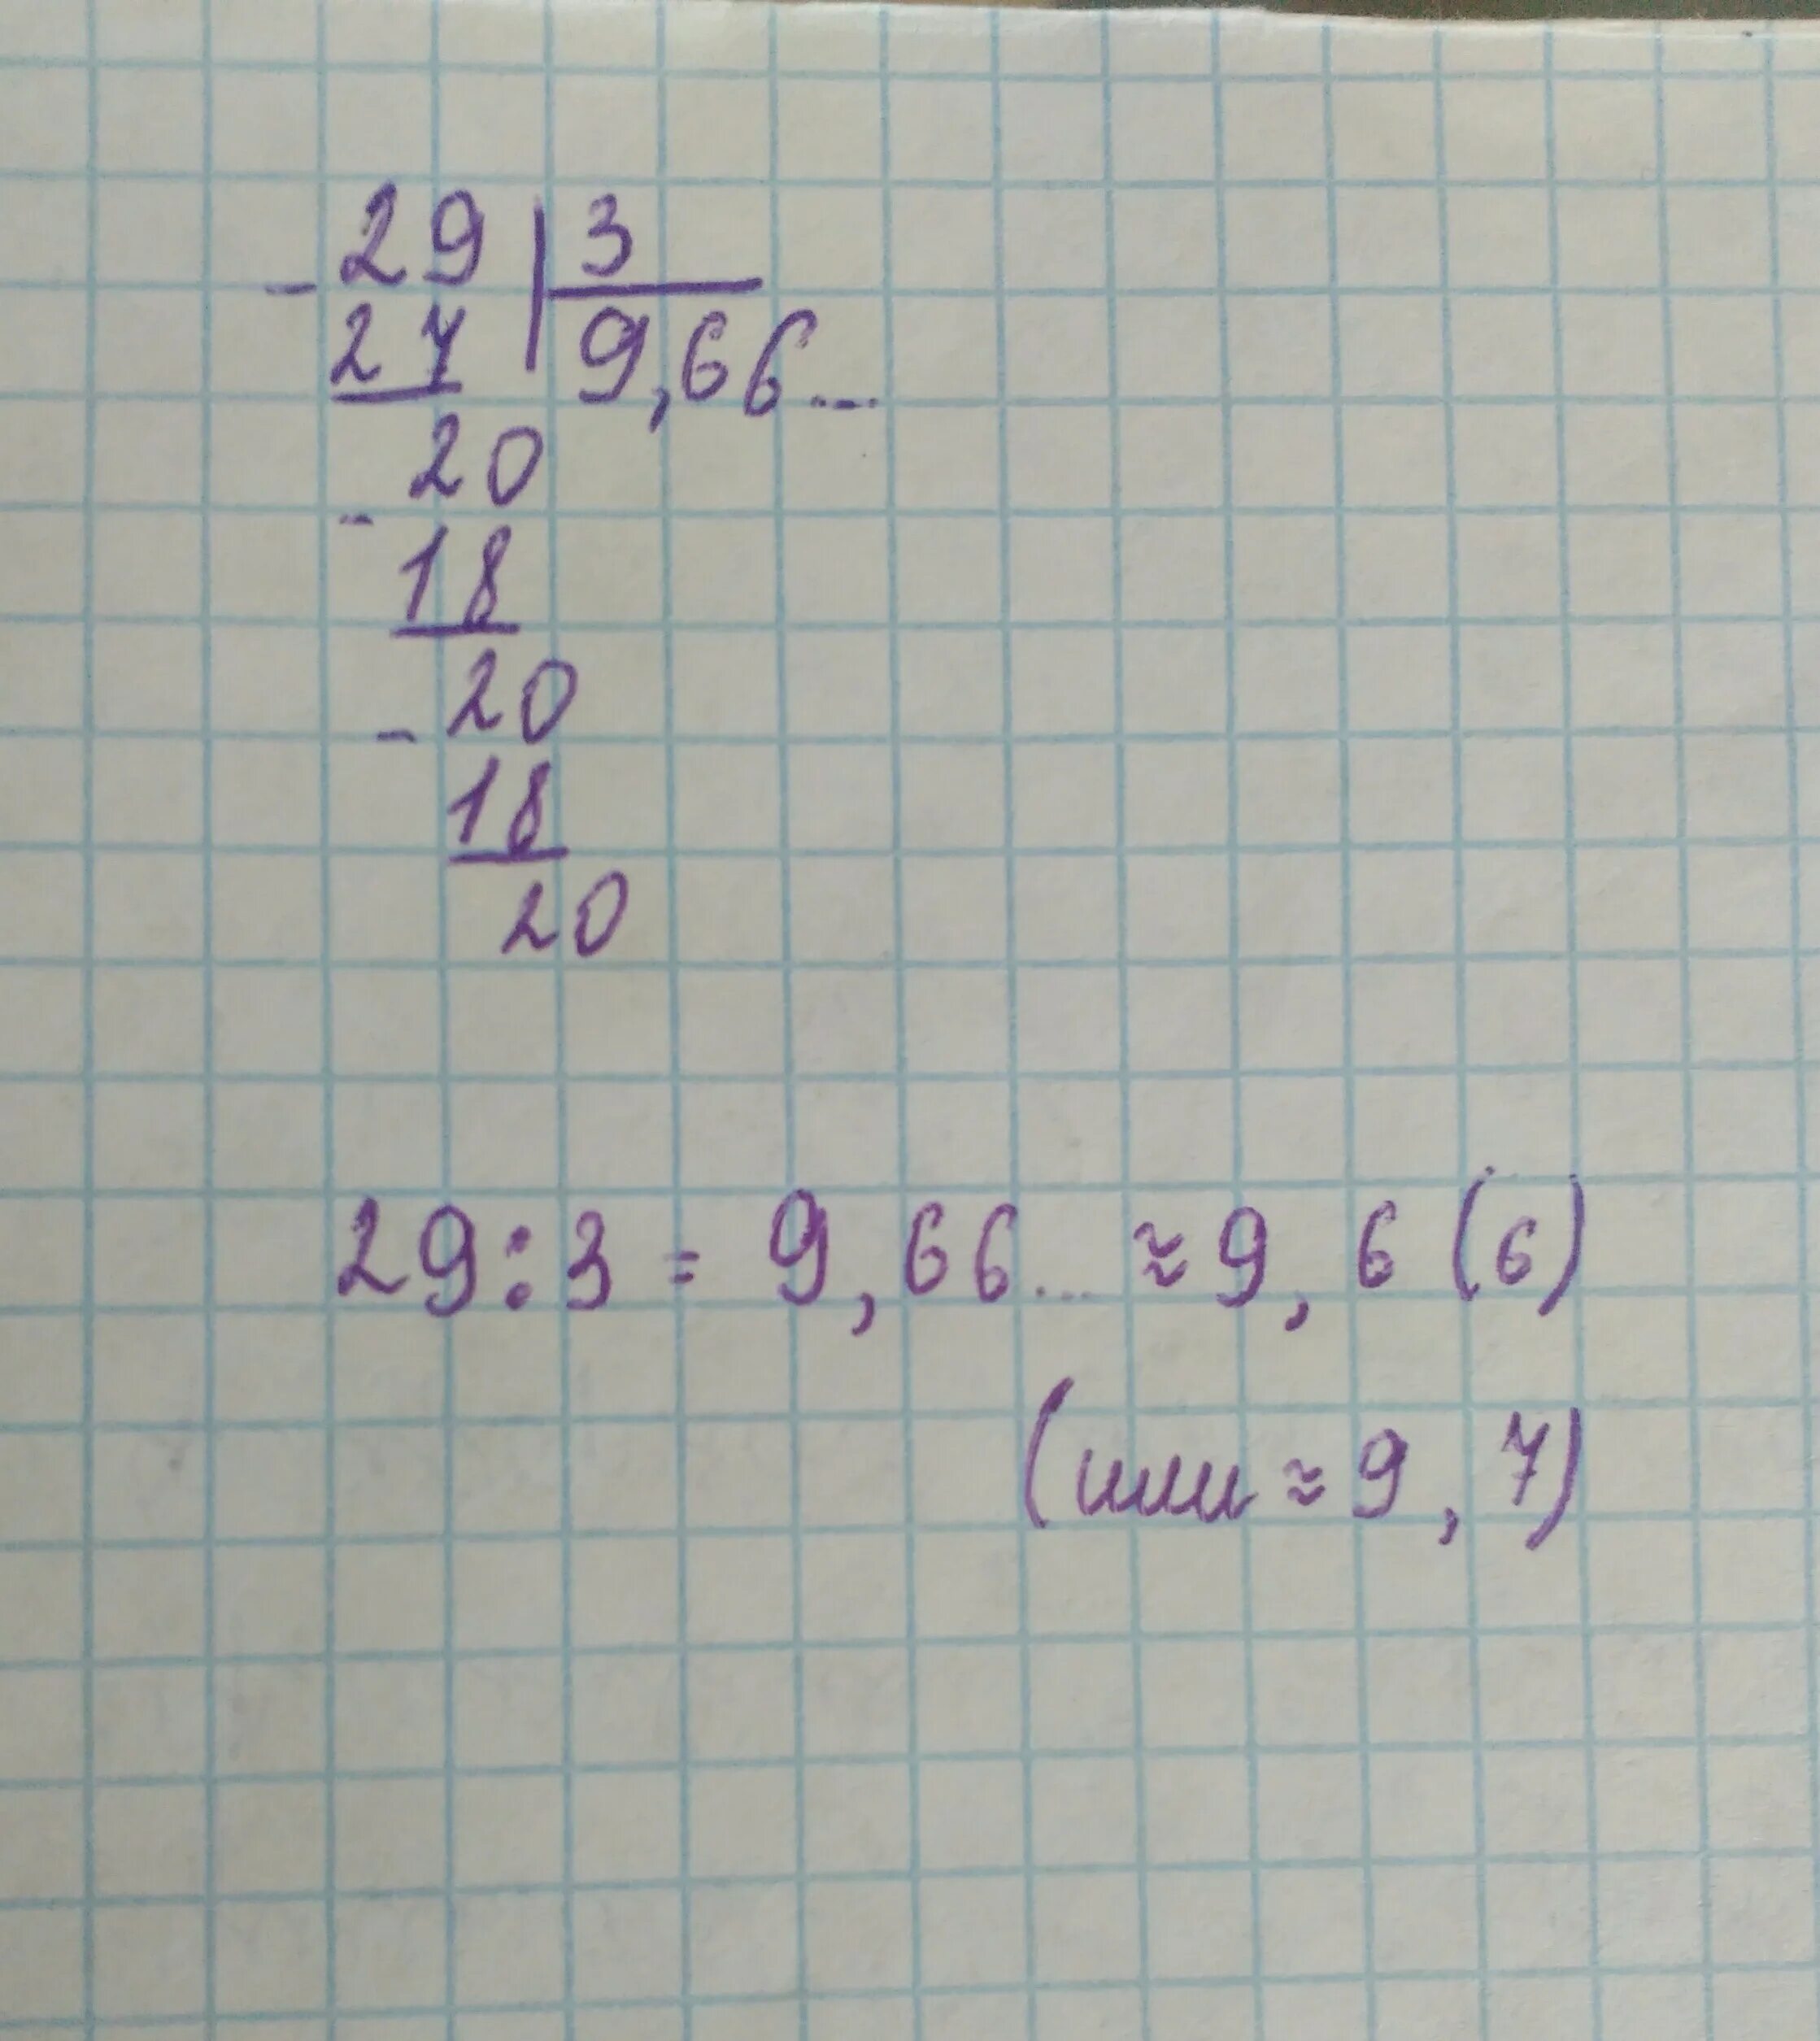 - 29 | 3
27 | 9,66...
20
- 18
20
- 18
20
29:3 = 9,66... ≈ 9,6(6)
(или ≈ 9,7)